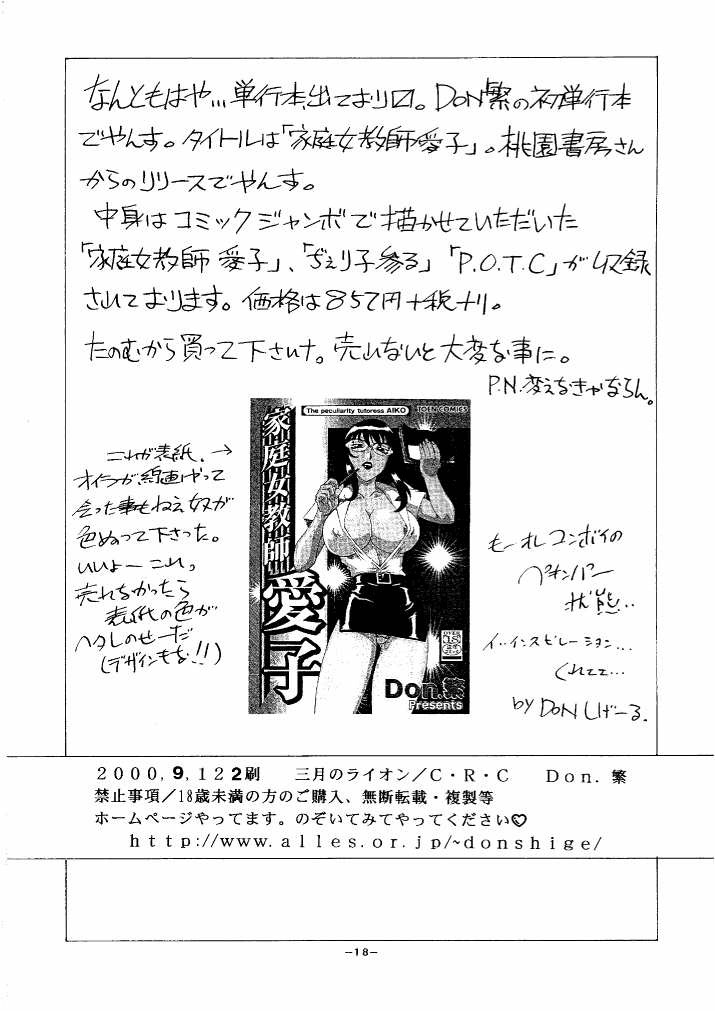 なんともはや…単行本出ており〼。DON繁の初単行本
でやんす。タイトルは「家庭女教師愛子」。桃園書房さん
からのリリースでやんす。
中身はコミックジャンボで描かせていただいた
「家庭女教師 愛子」、「ぢぇり子参る」「P.O.T.C」が収録
されております。価格は857円+税ナリ。
たのむから買って下さいナ。売れないと大変な事に。
P.N.変えなきゃならん。
これが表紙、→
オイラが線画やって
会った事もねえ奴が
色ぬって下さった。
いいよー これっ
売れなかったら
表紙の色が
ヘタレのせーだ
(デザインもな!!)
The peculiarity tutoress AIKO
TOEN COMICS
家庭女教師
愛子
Don.繁
Presents
もーれコンボイの
ペキンパー
状態..
イ..インスピレーション...
くれてて...
by DON しげーる.
2000,9,12 2刷 三月のライオン/C・R・C Don.繁
禁止事項/18歳未満の方のご購入、無断転載・複製等
ホームページやってます。のぞいてみてやってください♡
http://www.alles.or.jp/~donshige/
-18-